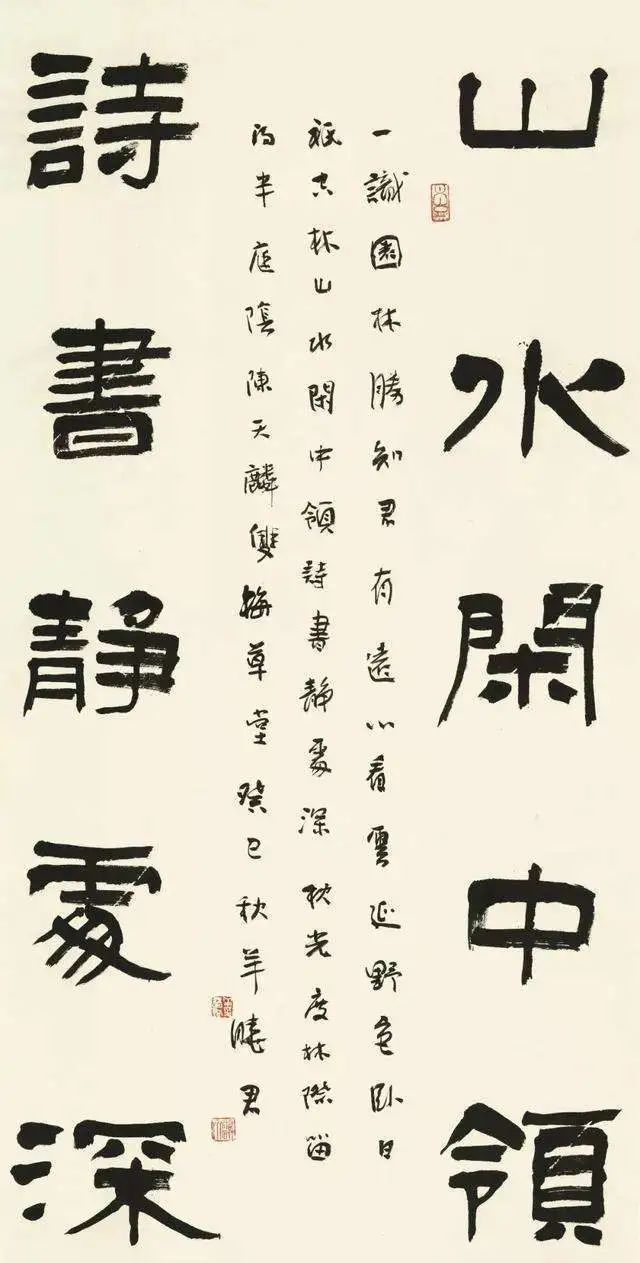 山水閑中領
一識園林勝知君有遠心看雲延野色卧日
祇古林山水閑中領詩書靜處深秋光度林際留
得半庭陰陳天麟雙梅草堂癸巳秋羊曉君
詩書靜處深